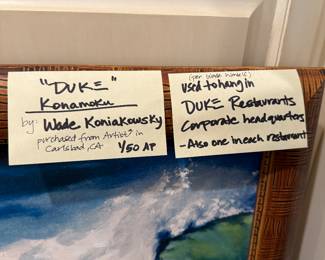 "DUKE"
Konamoku
by: Wade Koniakowsky
purchased from Artist in
Carlsbad, CA 1/50 AP
(per Wade himself)
used to hang in
DUKE Restaurants
Corporate headquarters
-Also one in each restaurant